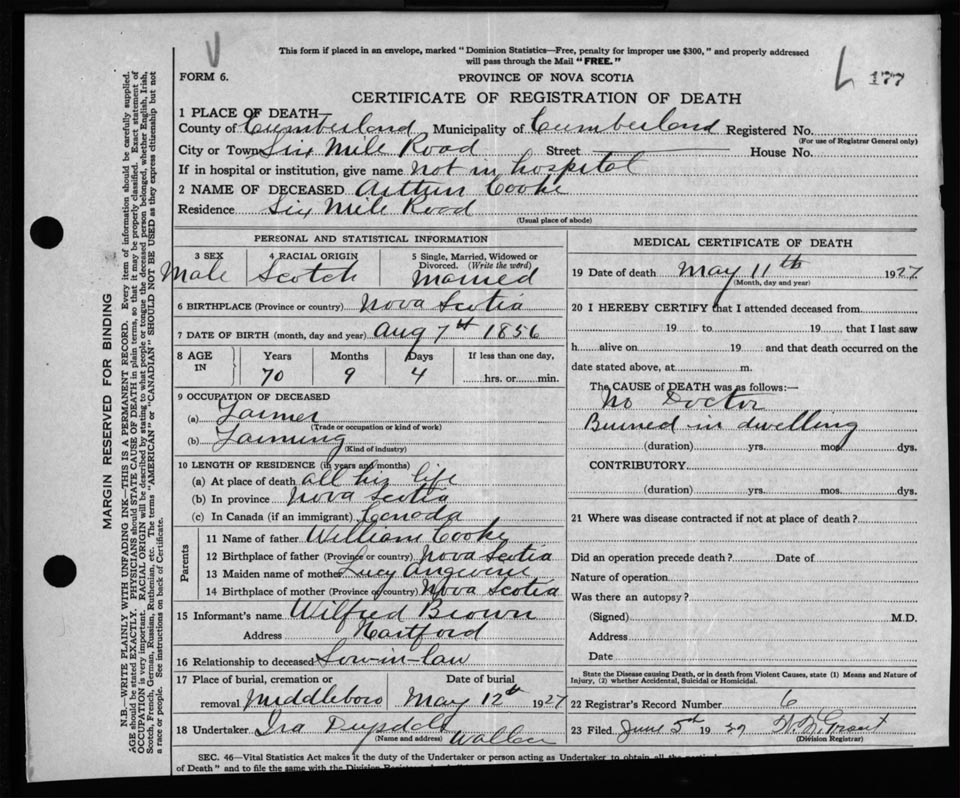 This form if placed in an envelope, marked "Dominion Statistics—Free, penalty for improper use $300," and properly addressed
will pass through the Mail "FREE."
FORM 6.
PROVINCE OF NOVA SCOTIA
177
CERTIFICATE OF REGISTRATION OF DEATH
1 PLACE OF DEATH—
County of Cumberland Municipality of Cumberland Registered No.
(For use of Registrar General only)
City or Town Six Mile Road Street House No.
If in hospital or institution, give name not in hospital
2 NAME OF DECEASED Arthur Cooke
Residence Six Mile Road
(Usual place of abode)
PERSONAL AND STATISTICAL INFORMATION
3 SEX 4 RACIAL ORIGIN 5 Single, Married, Widowed or
Divorced. (Write the word)
Male Scotch Married
6 BIRTHPLACE (Province or country) Nova Scotia
7 DATE OF BIRTH (month, day and year) Aug 7th 1856
8 AGE IN Years Months Days If less than one day,
70 9 4 hrs. or min.
9 OCCUPATION OF DECEASED
(a) Farmer
(Trade or occupation or kind of work)
(b) Farming
(Kind of industry)
10 LENGTH OF RESIDENCE (in years and months)
(a) At place of death all his life
(b) In province Nova Scotia
(c) In Canada (if an immigrant) Canada
Parents
11 Name of father William Cooke
12 Birthplace of father (Province or country) Nova Scotia
13 Maiden name of mother Lucy Angevine
14 Birthplace of mother (Province or country) Nova Scotia
15 Informant's name Wilfred Brown
Address Hartford
16 Relationship to deceased Son-in-law
17 Place of burial, cremation or Date of burial
removal Middleboro May 12th 1927
18 Undertaker Ira
(Name and address) Wallace
MEDICAL CERTIFICATE OF DEATH
19 Date of death May 11th 1927
(Month, day and year)
20 I HEREBY CERTIFY that I attended deceased from
19 to 19 , that I last saw
h alive on 19 and that death occurred on the
date stated above, at m.
The CAUSE of DEATH was as follows:—
No Doctor
Burned in dwelling
(duration) yrs. mos. dys.
CONTRIBUTORY
(duration) yrs. mos. dys.
21 Where was disease contracted if not at place of death?
Did an operation precede death? Date of
Nature of operation
Was there an autopsy?
(Signed) M.D.
Address
Date
State the Disease causing Death, or in death from Violent Causes, state (1) Means and Nature of
Injury, (2) whether Accidental, Suicidal or Homicidal.
22 Registrar's Record Number 6
23 Filed June 5th 1927 Grant
(Division Registrar)
SEC. 46—Vital Statistics Act makes it the duty of the Undertaker or person acting as Undertaker to obtain all
of Death" and to file the same with the Division
MARGIN RESERVED FOR BINDING
N.B.—WRITE PLAINLY WITH UNFADING INK—THIS IS A PERMANENT RECORD. Every item of information should be carefully supplied.
AGE should be stated EXACTLY. PHYSICIANS should STATE CAUSE OF DEATH in plain terms, so that it may be properly classified. Exact statement of
OCCUPATION is very important. RACIAL ORIGIN will be described by stating to what people or tongue the deceased person belonged, whether English, Irish,
Scotch, French, German, Russian, Ruthenian, etc. The terms "AMERICAN" or "CANADIAN" SHOULD NOT BE USED as they express citizenship but not
a race or people. See instructions on back of Certificate.